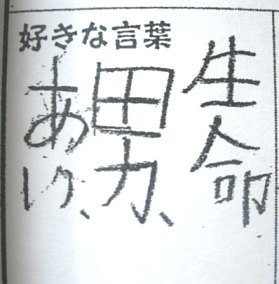 好きな言葉
生命
男、
あい、